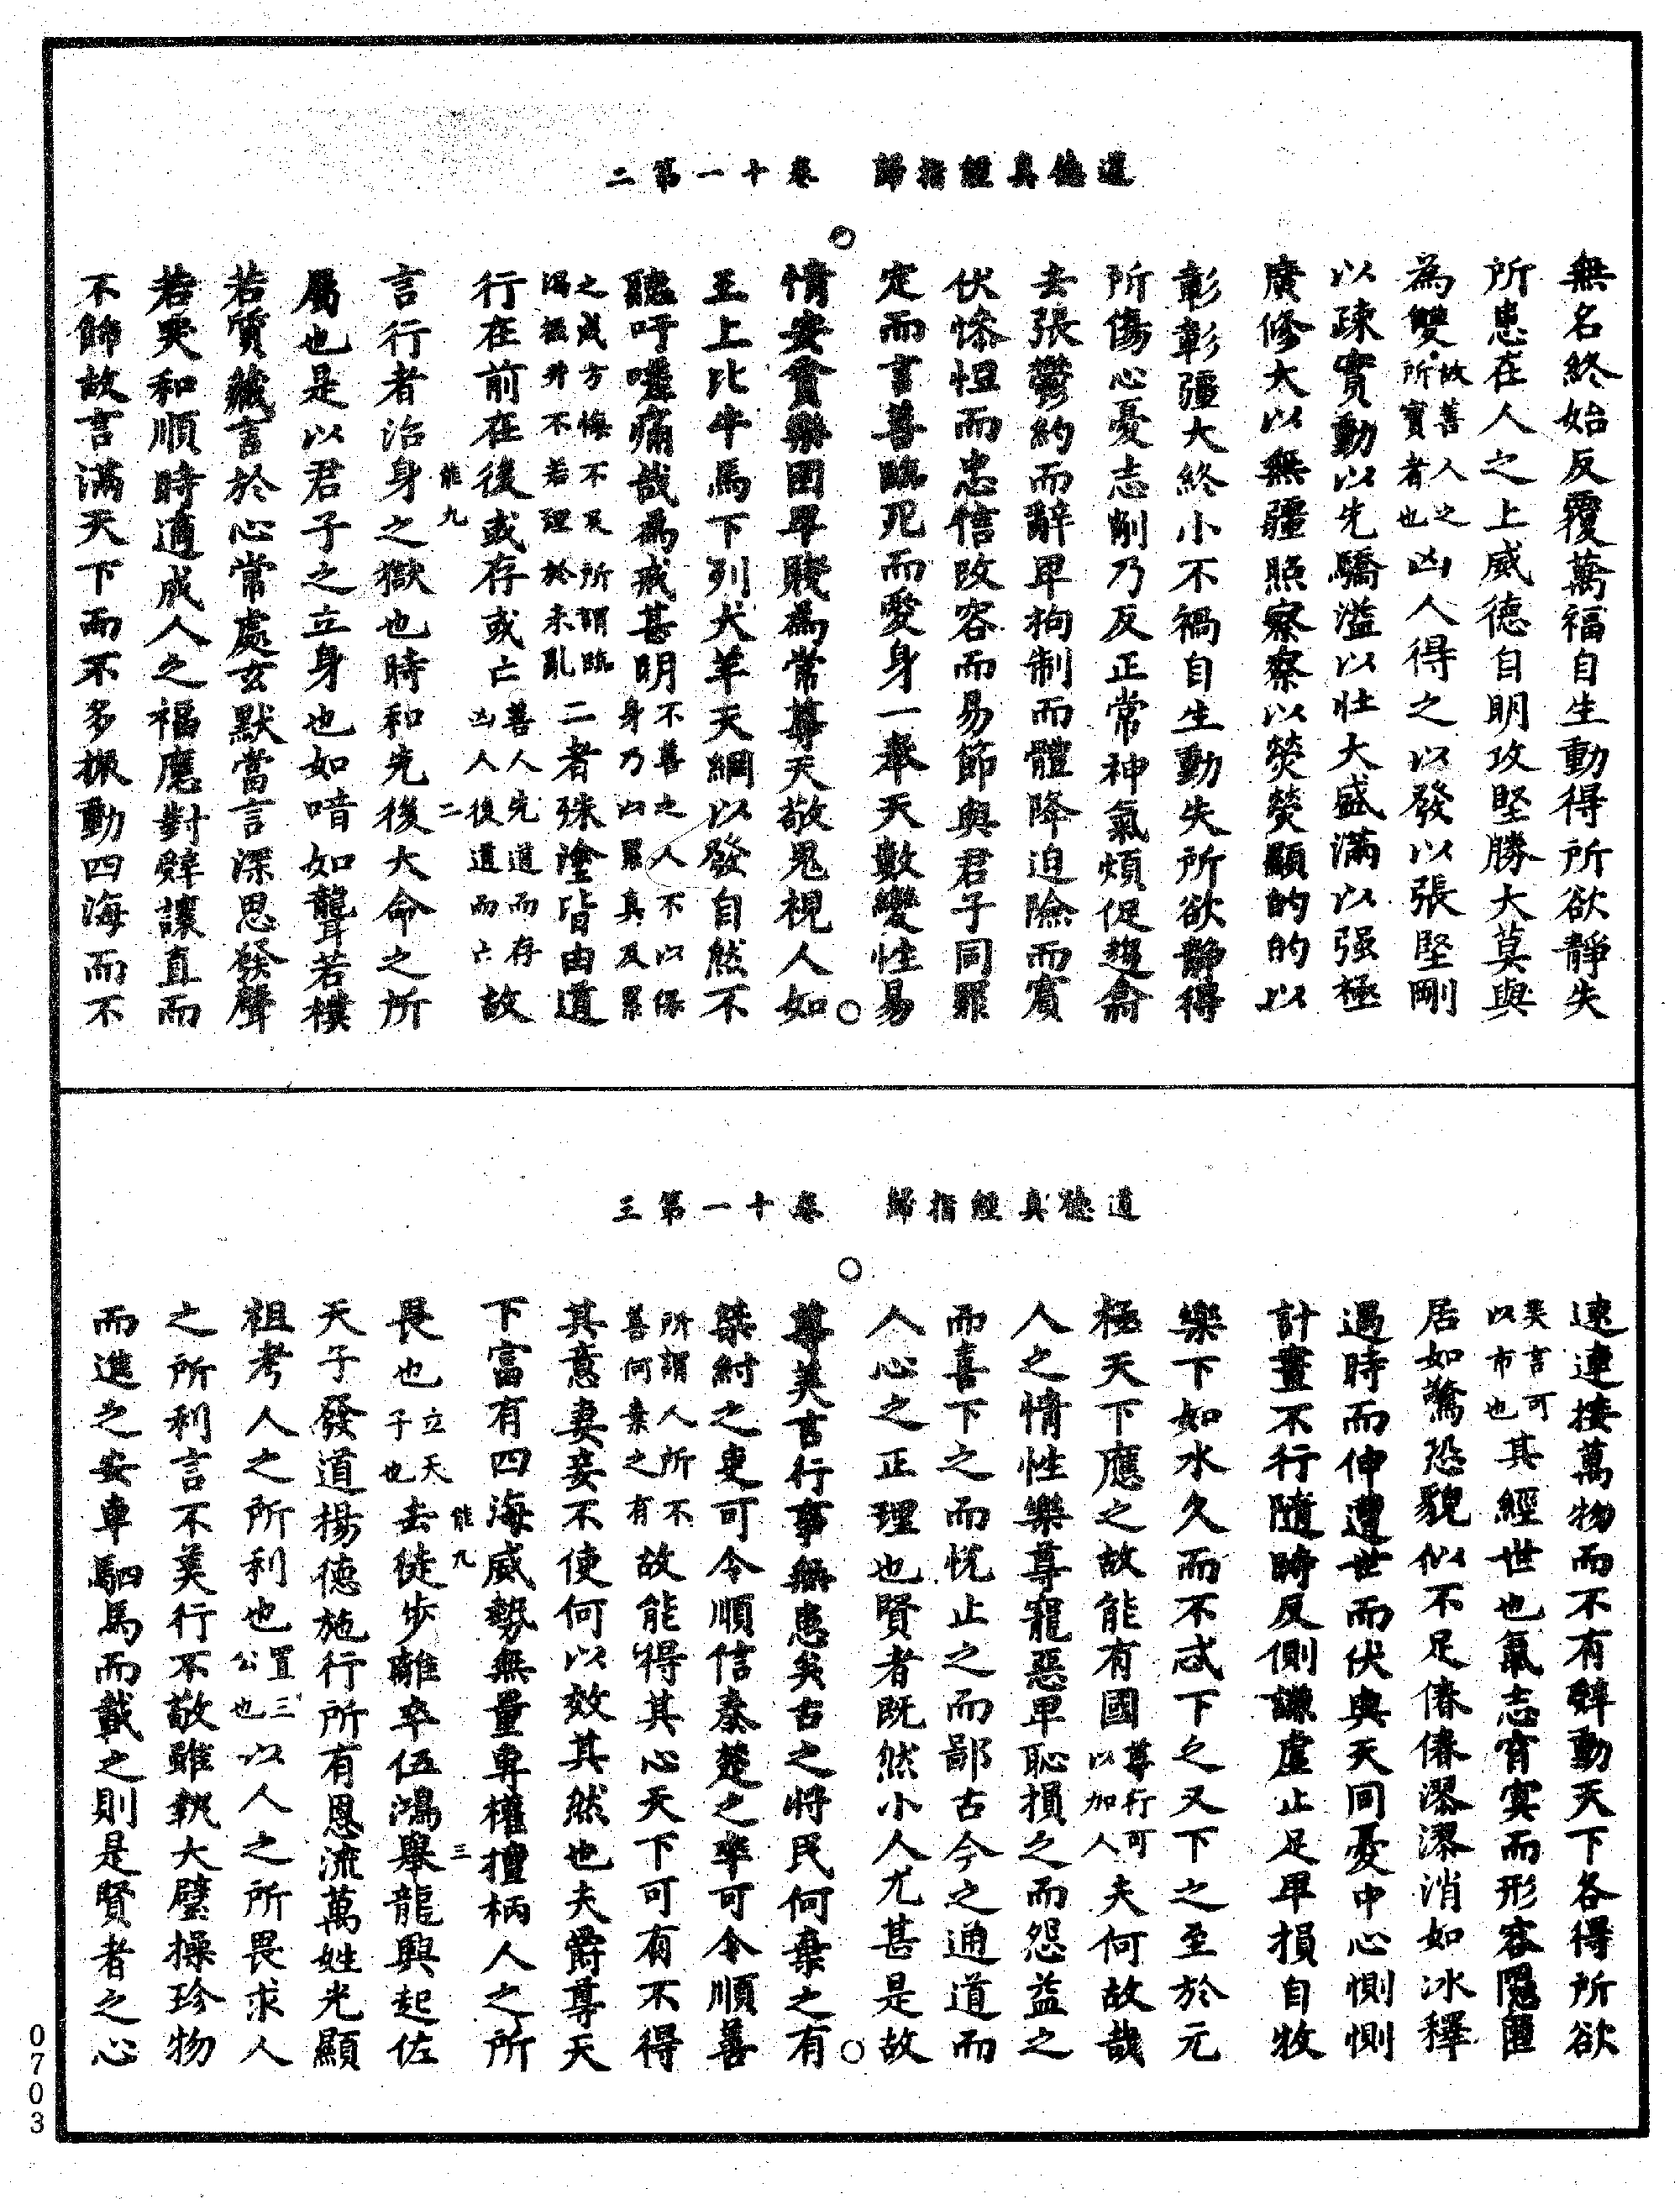 道德真經指歸　卷十一第二
無名終始反覆萬福自生動得所欲靜失
所患在人之上威德自明攻堅勝大莫與
為雙故善人之所寶者也凶人得之以發以張堅剛
以疎實動以先驕溢以壯大盛滿以强極
廣修大以無疆照察察以熒熒顯的的以
彰彰疆大終小不禍自生動失所欲靜得
所傷心憂志削乃反正常神氣煩促趨翕
去張鬱約而辭卑拘制而體降迫險而賓
伏慘怛而忠信改容而易節與君子同罪
定而言善臨死而愛身一奉天數變性易
情安貧樂困卑賤為常尊天敬鬼視人如
王上比牛馬下列犬羊天網以發自然不
聽吁嗟痛哉為戒甚明不善之人不以保身乃凶罪真及罪
之戚方悔不及所謂臨渴掘井不若理於未亂二者殊塗皆由道
行在前在後或存或亡善人先道而存凶人後道而亡故
能九
二
言行者治身之獄也時和先後大命之所
屬也是以君子之立身也如喑如聾若樸
若質藏言於心常處玄默當言深思發聲
若哭和順時適成人之福應對辭讓直而
不飾故言滿天下而不多振動四海而不
道德真經指歸　卷十一第三
速連接萬物而不有辭動天下各得所欲
美言可以市也其經世也氣志窅冥而形容隱匿
居如驚恐貌似不足偆偆漻漻消如冰釋
遇時而伸遭世而伏與天同憂中心惻惻
計畫不行隨時反側謙虛止足卑損自牧
樂下如水久而不忒下之又下之至於元
極天下應之故能有國尊行可以加人夫何故哉
人之情性樂尊寵惡卑恥損之而怨益之
而喜下之而悅止之而鄙古今之通道而
人心之正理也賢者既然小人尤甚是故
尊美言行事無患矣古之將民何棄之有
桀紂之吏可令順信秦楚之卒可令順善
所謂人所不善何棄之有故能得其心天下可有不得
其意妻妾不使何以效其然也夫爵尊天
下富有四海威勢無量專權擅柄人之所
畏也立天子也去徒步離卒伍鴻舉龍興起佐
能九
三
天子發道揚德施行所有恩流萬姓光顯
祖考人之所利也置三公也以人之所畏求人
之所利言不美行不敬雖執大璧操珍物
而進之安車駟馬而載之則是賢者之心
0703